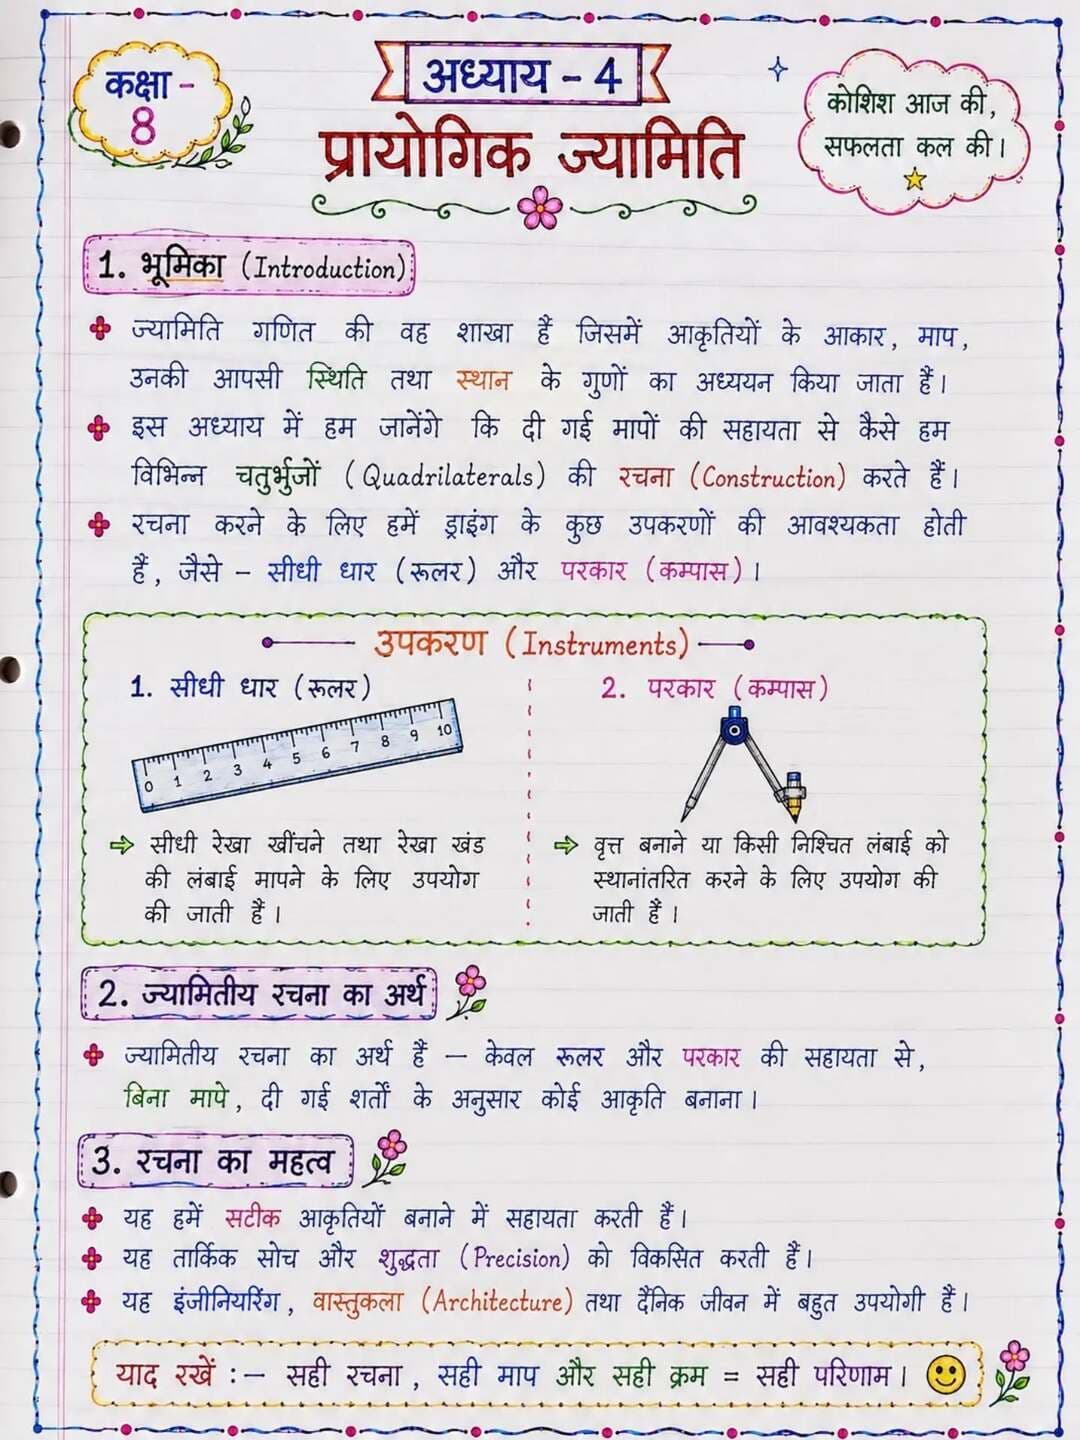 कक्षा -
8
अध्याय - 4
प्रायोगिक ज्यामिति
कोशिश आज की,
सफलता कल की।
1. भूमिका (Introduction)
ज्यामिति गणित की वह शाखा हैं जिसमें आकृतियों के आकार, माप,
उनकी आपसी स्थिति तथा स्थान के गुणों का अध्ययन किया जाता हैं।
इस अध्याय में हम जानेंगे कि दी गई मापों की सहायता से कैसे हम
विभिन्न चतुर्भुजों (Quadrilaterals) की रचना (Construction) करते हैं।
रचना करने के लिए हमें ड्राइंग के कुछ उपकरणों की आवश्यकता होती
हैं, जैसे - सीधी धार (रूलर) और परकार (कम्पास)।
उपकरण (Instruments)
1. सीधी धार (रूलर)
0 1 2 3 4 5 6 7 8 9 10
सीधी रेखा खींचने तथा रेखा खंड
की लंबाई मापने के लिए उपयोग
की जाती हैं।
2. परकार (कम्पास)
वृत्त बनाने या किसी निश्चित लंबाई को
स्थानांतरित करने के लिए उपयोग की
जाती हैं।
2. ज्यामितीय रचना का अर्थ
ज्यामितीय रचना का अर्थ हैं - केवल रूलर और परकार की सहायता से,
बिना मापे, दी गई शर्तों के अनुसार कोई आकृति बनाना।
3. रचना का महत्व
यह हमें सटीक आकृतियों बनाने में सहायता करती हैं।
यह तार्किक सोच और शुद्धता (Precision) को विकसित करती हैं।
यह इंजीनियरिंग, वास्तुकला (Architecture) तथा दैनिक जीवन में बहुत उपयोगी हैं।
याद रखें :- सही रचना, सही माप और सही क्रम = सही परिणाम।